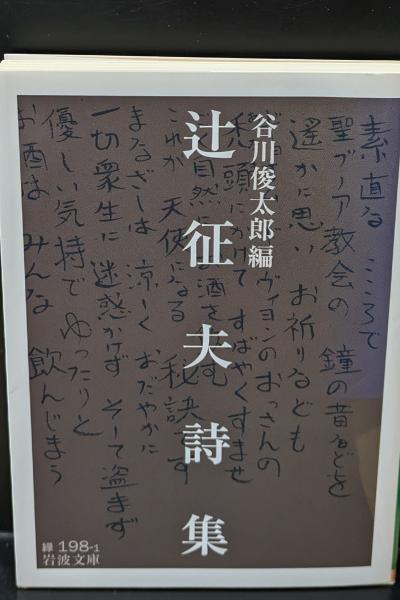 谷川俊太郎編
辻征夫詩集
素直な こころで
聖ブーア教会の 鐘の音などを
遥かに思い お祈りなども
ヴィヨンのおっさんの
禿頭にかけて すばやくすませ
自然に お酒を
これが 天使になる 秘訣です
まなざしは 涼しく おだやかに
一切衆生に 迷惑かけず そして盗まず
優しい気持で ゆったりと
お酒は みんな 飲んじまう
緑 198-1
岩波文庫